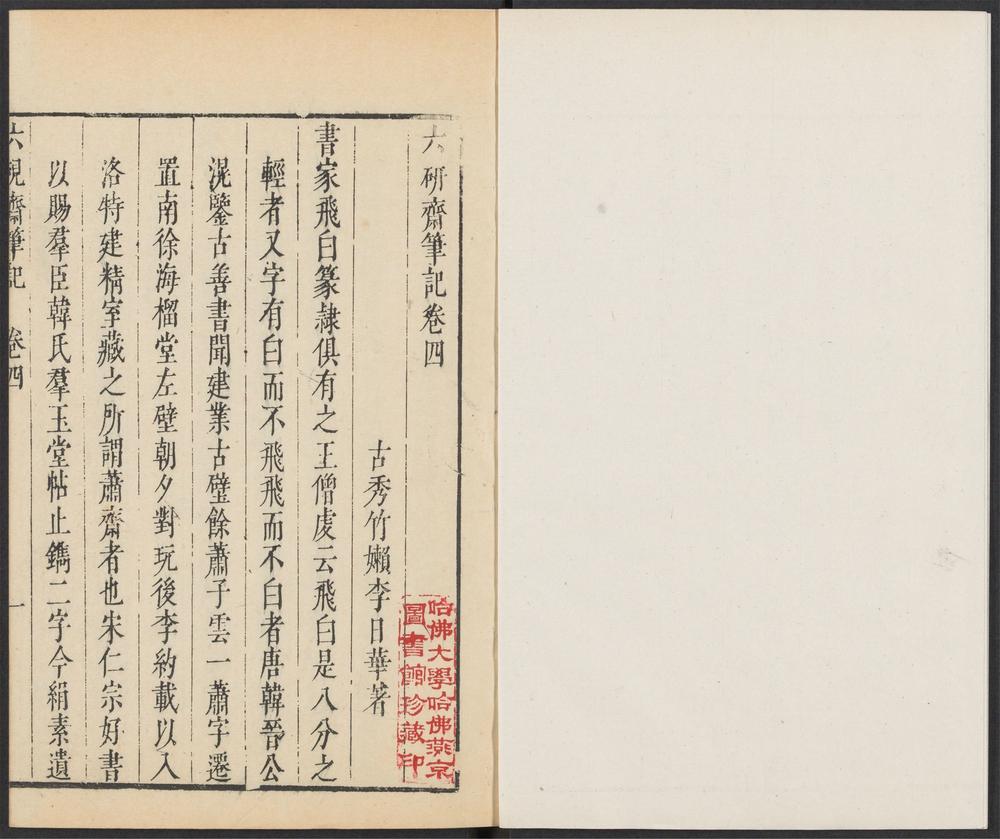 六研齋筆記卷四
古秀竹嬾李日華著
書家飛白篆隷俱有之王僧虔云飛白是八分之
輕者又字有白而不飛飛而不白者唐韓晉公
滉鑒古善書聞建業古壁餘蕭子雲一蕭字遷
置南徐海榴堂左壁朝夕對玩後李約載以入
洛特建精室藏之所謂蕭齋者也宋仁宗好書
以賜羣臣韓氏羣玉堂帖止鐫二字今絹素遺
六硯齋筆記 卷四 一
哈佛大學哈佛燕京
圖書館珍藏印